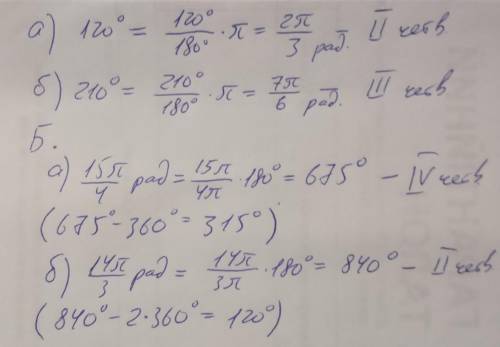 а) 120° = 120°/180° · π = 2π/3 рад. II четв
б) 210° = 210°/180° · π = 7π/6 рад. III четв
Б.
а) 15π/4 рад = 15π/4π · 180° = 675° – IV четв
(675° – 360° = 315°)
б) 14π/3 рад = 14π/3π · 180° = 840° – II четв
(840° – 2·360° = 120°)